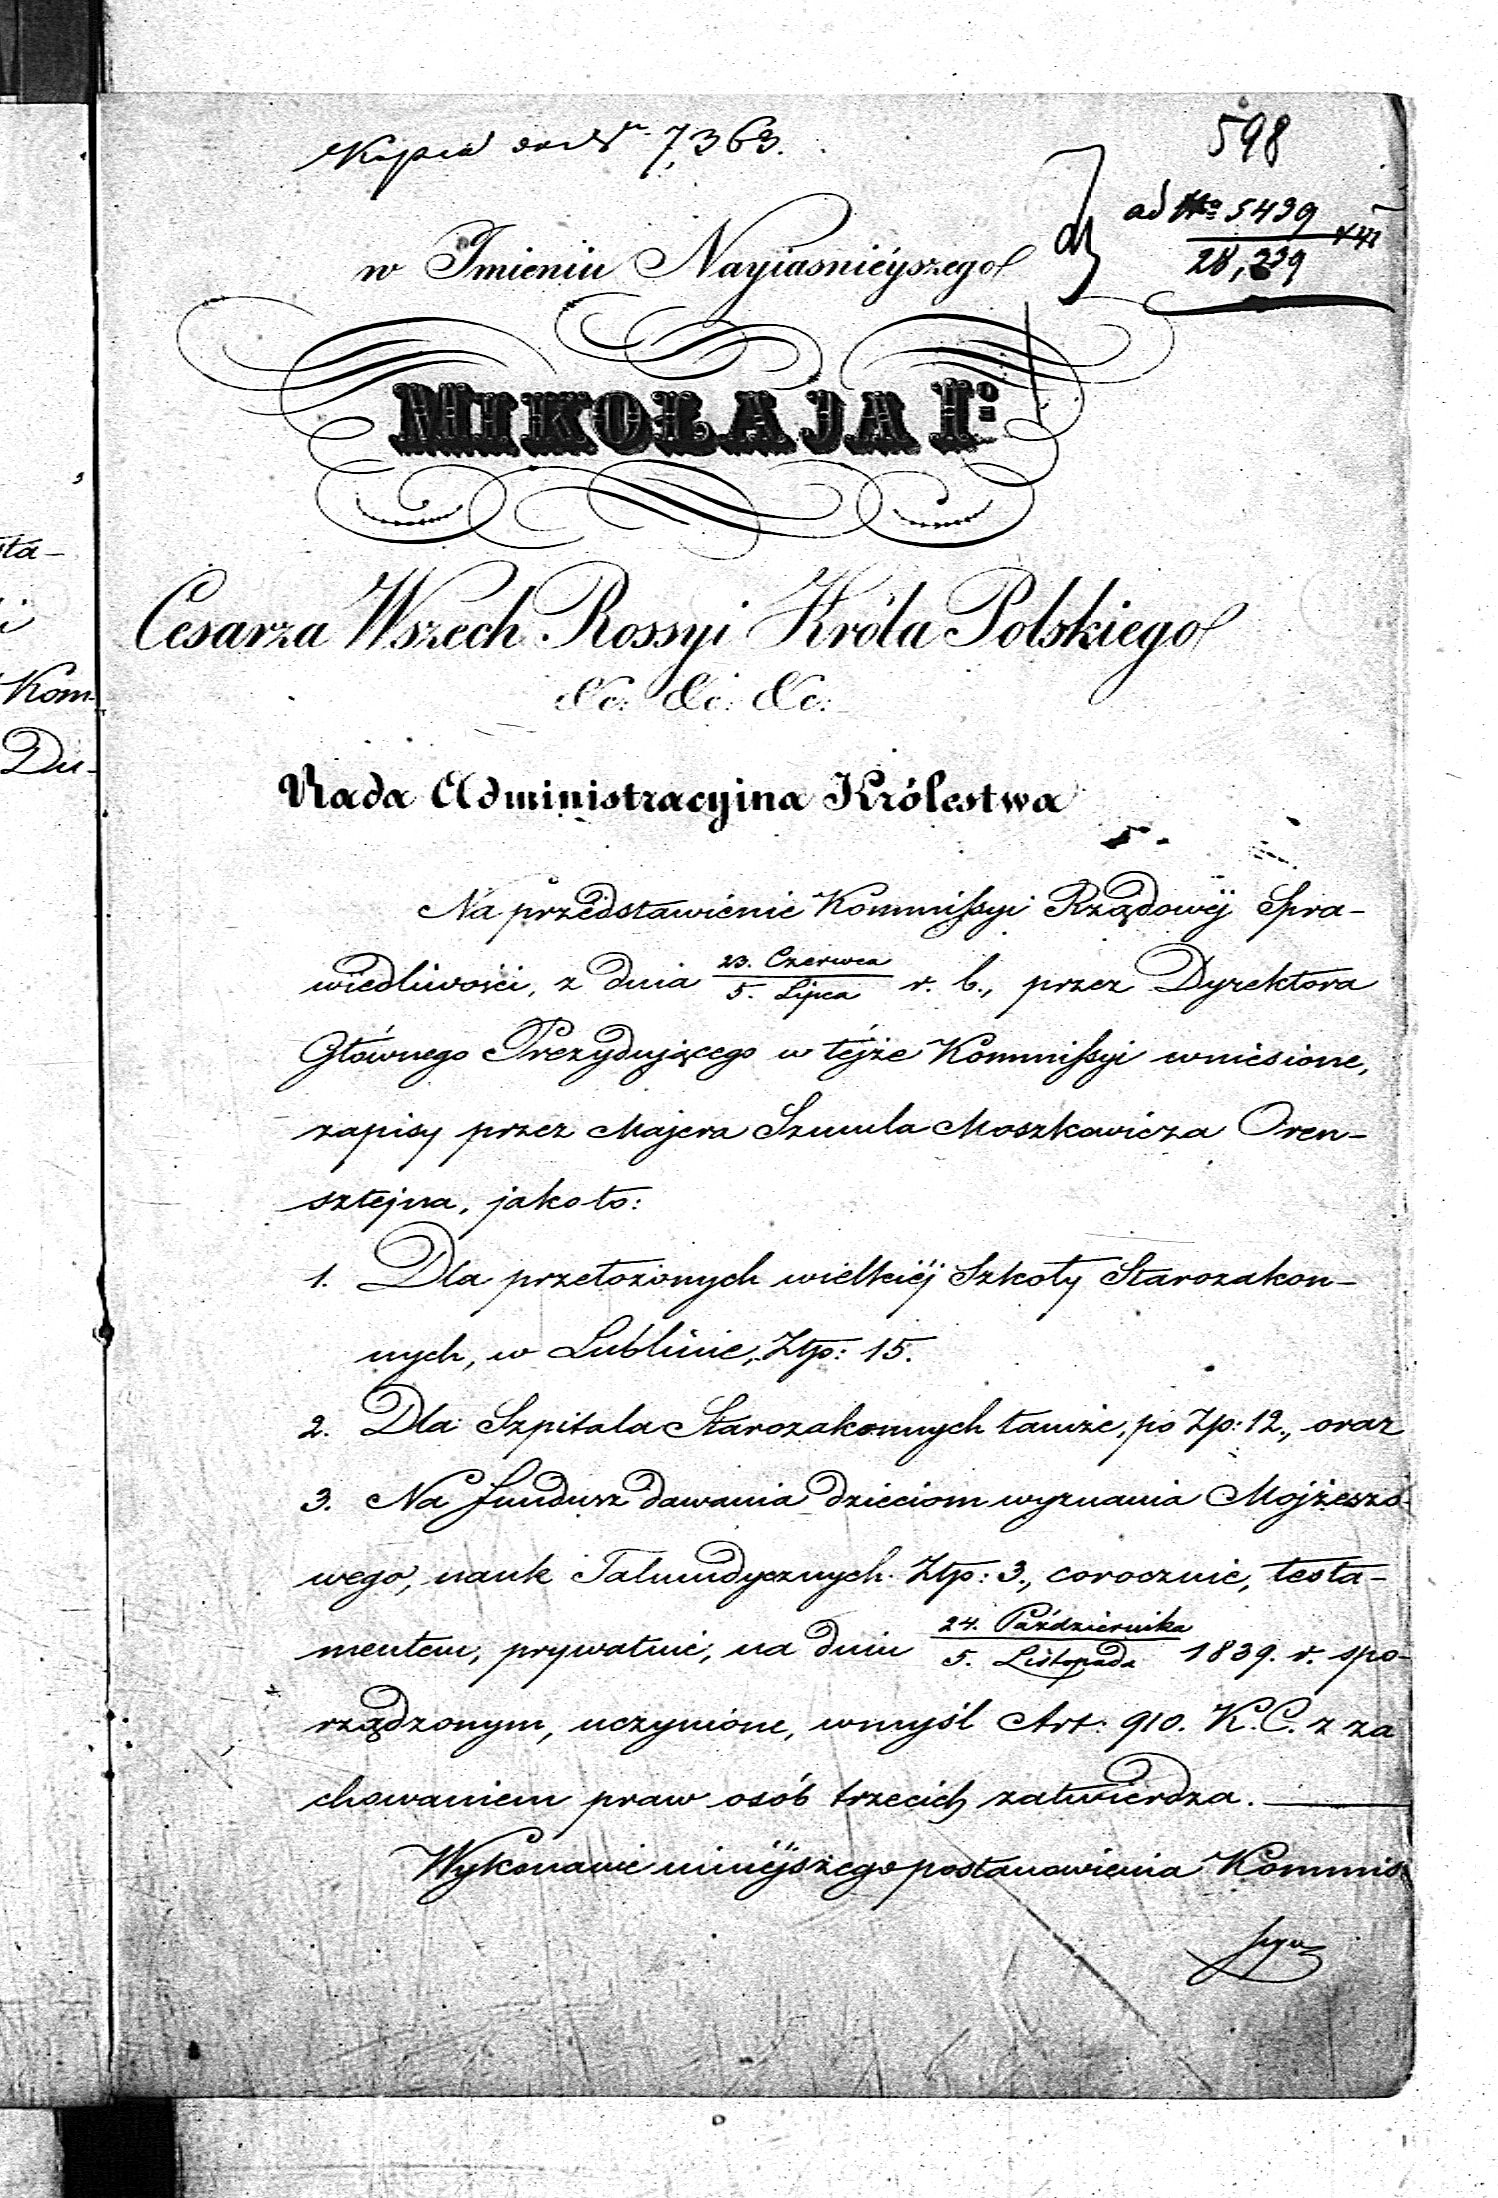 598
Kopia do Nr 7,363.
ad No 5439
28,239
w Imieniu Nayiasnieyszego
MIKOŁAJA Igo
Cesarza Wszech Rossyi Króla Polskiego
&c. &c. &c.
Rada Administracyina Królestwa
Na przedstawienie Kommissyi Rządowéj Spra-
wiedliwości, z dnia 23. Czerwca / 5. Lipca r. b., przez Dyrektora
Głównego Prezydującego w téjże Kommissyi wniesione,
zapisy przez Majera Szmula Moszkowicza Oren-
sztejna, jako to:
1. Dla przełożonych wielkiéj Szkoły Starozakon-
nych, w Lublinie, Złp: 15.
2. Dla Szpitala Starozakonnych tamże, po Złp: 12., oraz
3. Na fundusz dawania dzieciom wyznania Mojżeszo-
wego, nauk Talmudycznych Złp: 3., corocznie, testa-
mentem, prywatnie, na dniu 24. Października / 5. Listopada 1839. r. spo-
rządzonym, uczynione, wmyśl Art: 910. K. C. z za
chowaniem praw osób trzecich zatwierdza.
Wykonanie niniéjszego postanowienia Kommis-
syi
sta-
Kom-
Du-